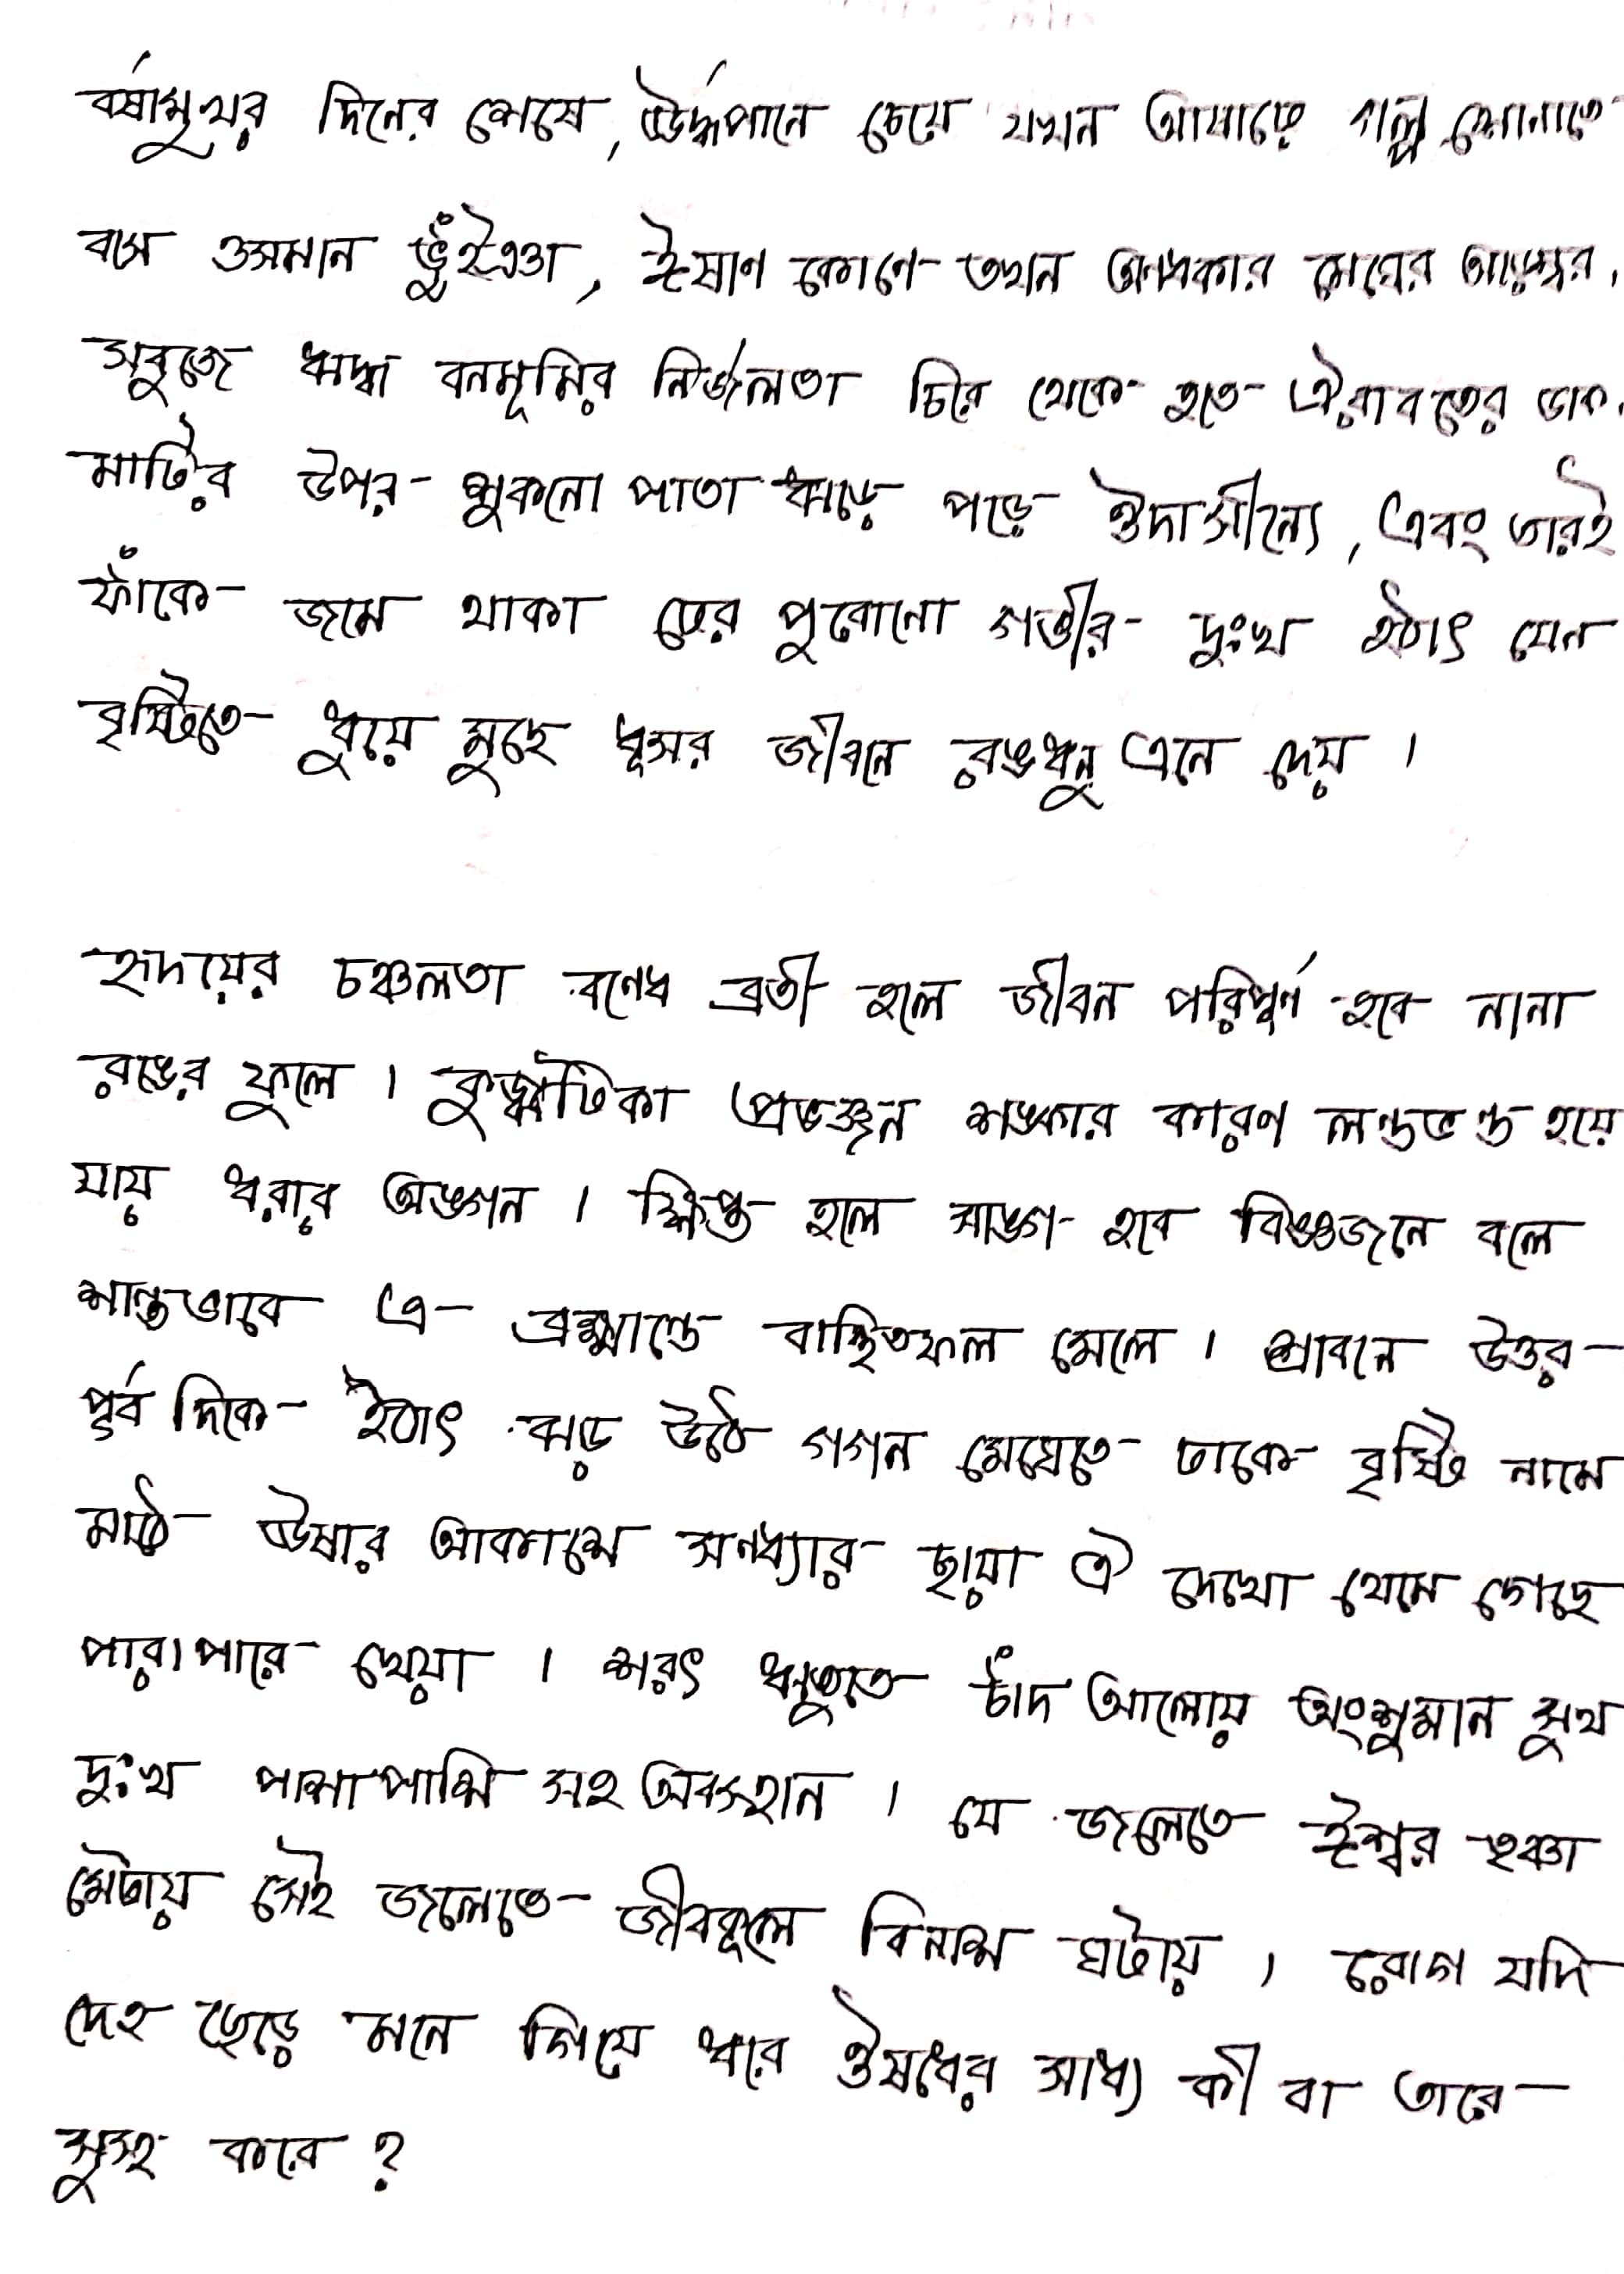 বর্ষামুখর দিনের শেষে, ঊর্দ্ধপানে চেয়ে যখন আষাঢ়ে গল্প শোনাতে
বসে ওসমান ভুঁইঞা, ঈষাণ কোণে তখন অন্ধকার মেঘের আড়ম্বর,
সবুজে ঋদ্ধ বনভূমির নির্জনতা চিরে থেকে হতে ঐরাবতের ডাক,
মাটির উপর শুকনো পাতা ঝড়ে পড়ে ঔদাসীন্যে, এবং তারই
ফাঁকে জমে থাকা ঢের পুরোনো গভীর দুঃখ হঠাৎ যেন
বৃষ্টিতে ধুয়ে মুছে ধূসর জীবনে রঙধনু এনে দেয়।
হৃদয়ের চঞ্চলতা বন্ধে ব্রতী হলে জীবন পরিপূর্ণ হবে নানা
রঙের ফুলে। কুজ্ঝটিকা প্রভঞ্জন শঙ্কার কারণ লন্ডভন্ড হয়ে
যায় ধরার অঙ্গন। ক্ষিপ্ত হলে সাঙ্গ হবে বিজ্ঞজনে বলে
শান্তভাবে এ ব্রহ্মান্ডে বাঞ্ছিতফল মেলে। শ্রাবনে উত্তর
পূর্ব দিকে হঠাৎ ঝড় উঠে গগন মেঘেতে ঢাকে বৃষ্টি নামে
মাঠে ঊষার আকাশে সন্ধ্যার ছায়া ঐ দেখো থেমে গেছে
পারাপারে খেয়া। শরৎ ঋতুতে চাঁদ আলোয় অংশুমান সুখ
দুঃখ পাশাপাশি সহ অবস্হান। যে জলেতে ঈশ্বর তৃষ্ণা
মেটায় সেই জলেতে জীবকূলে বিনাশ ঘটায়। রোগ যদি
দেহ ছেড়ে মনে গিয়ে ধরে ঔষধের সাধ্য কী বা তারে
সুস্হ করে?